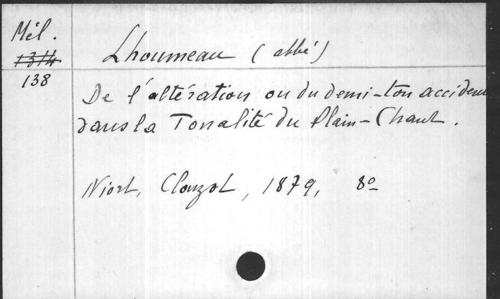 Mél.
1314
138
Lhoumeau (abbé)
De l'altération ou du demi-ton acciden
dans la Tonalité du Plain-Chant.
Niort, Clouzot, 1879, 8o